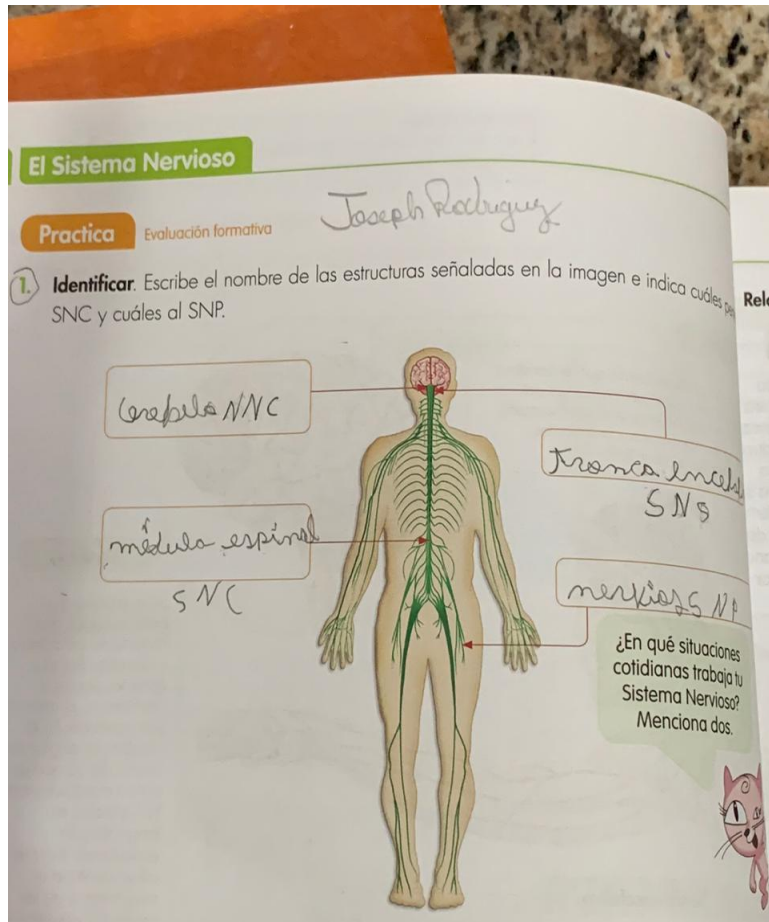 El Sistema Nervioso
Practica Evaluación formativa
Joseph Rodriguez
1. Identificar. Escribe el nombre de las estructuras señaladas en la imagen e indica cuáles
SNC y cuáles al SNP.
Rel
NNC
tronco
SNS
médula espinal
SNC
nervios S NP
¿En qué situaciones
cotidianas trabaja tu
Sistema Nervioso?
Menciona dos.